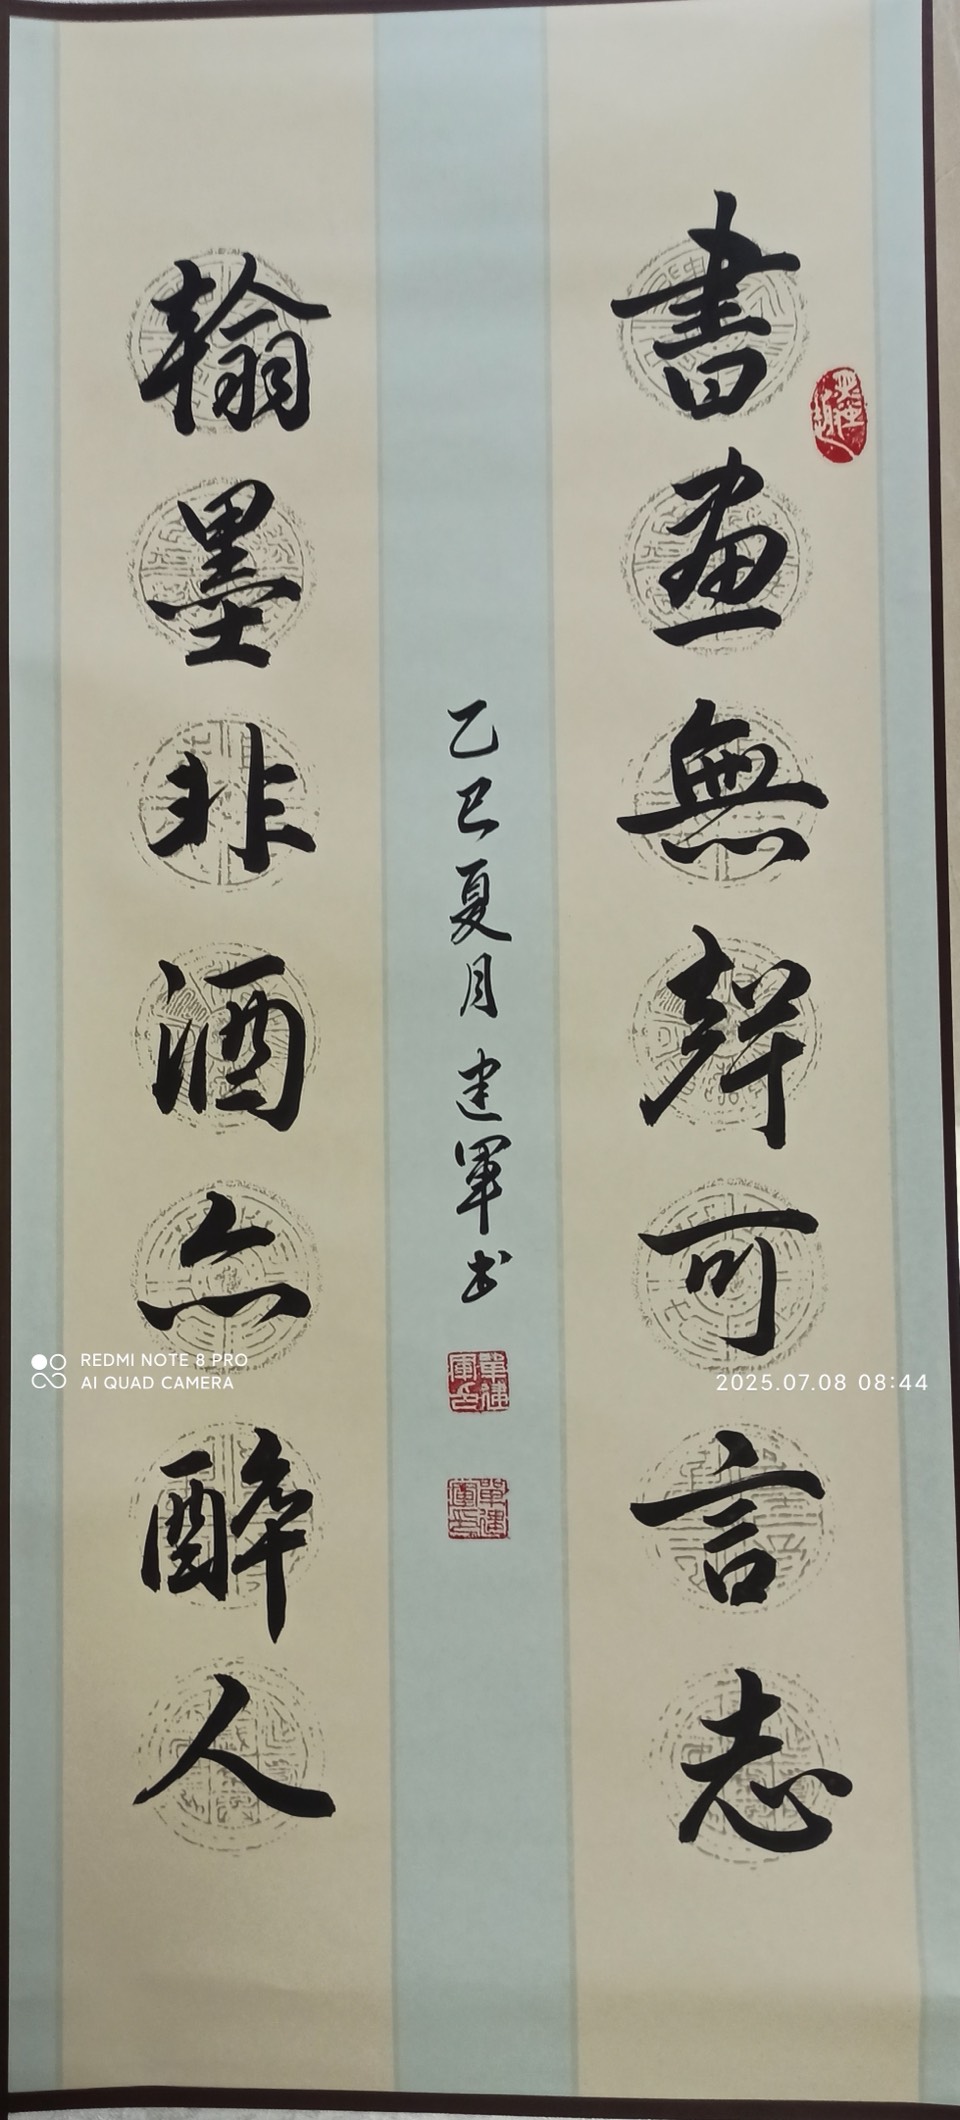 書畫無聲可言志
翰墨非酒亦醉人
乙巳夏月建軍书
墨趣
單建軍印
單建軍印
REDMI NOTE 8 PRO
AI QUAD CAMERA
2025.07.08 08:44